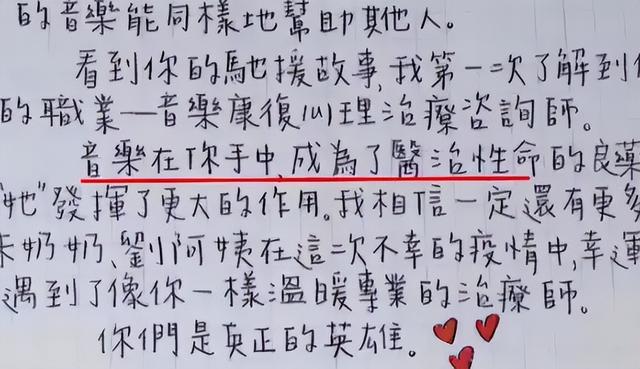 的音樂能同樣地幫助其他人。
看到你的馳援故事,我第一次了解到
的職業—音樂康復心理治療咨詢師。
音樂在你手中,成為了醫治性命的良藥
"她"發揮了更大的作用。我相信一定還有更多
奶奶、劉阿姨在這次不幸的疫情中,幸運
遇到了像你一樣溫暖專業的治療師。
你們是真正的英雄。